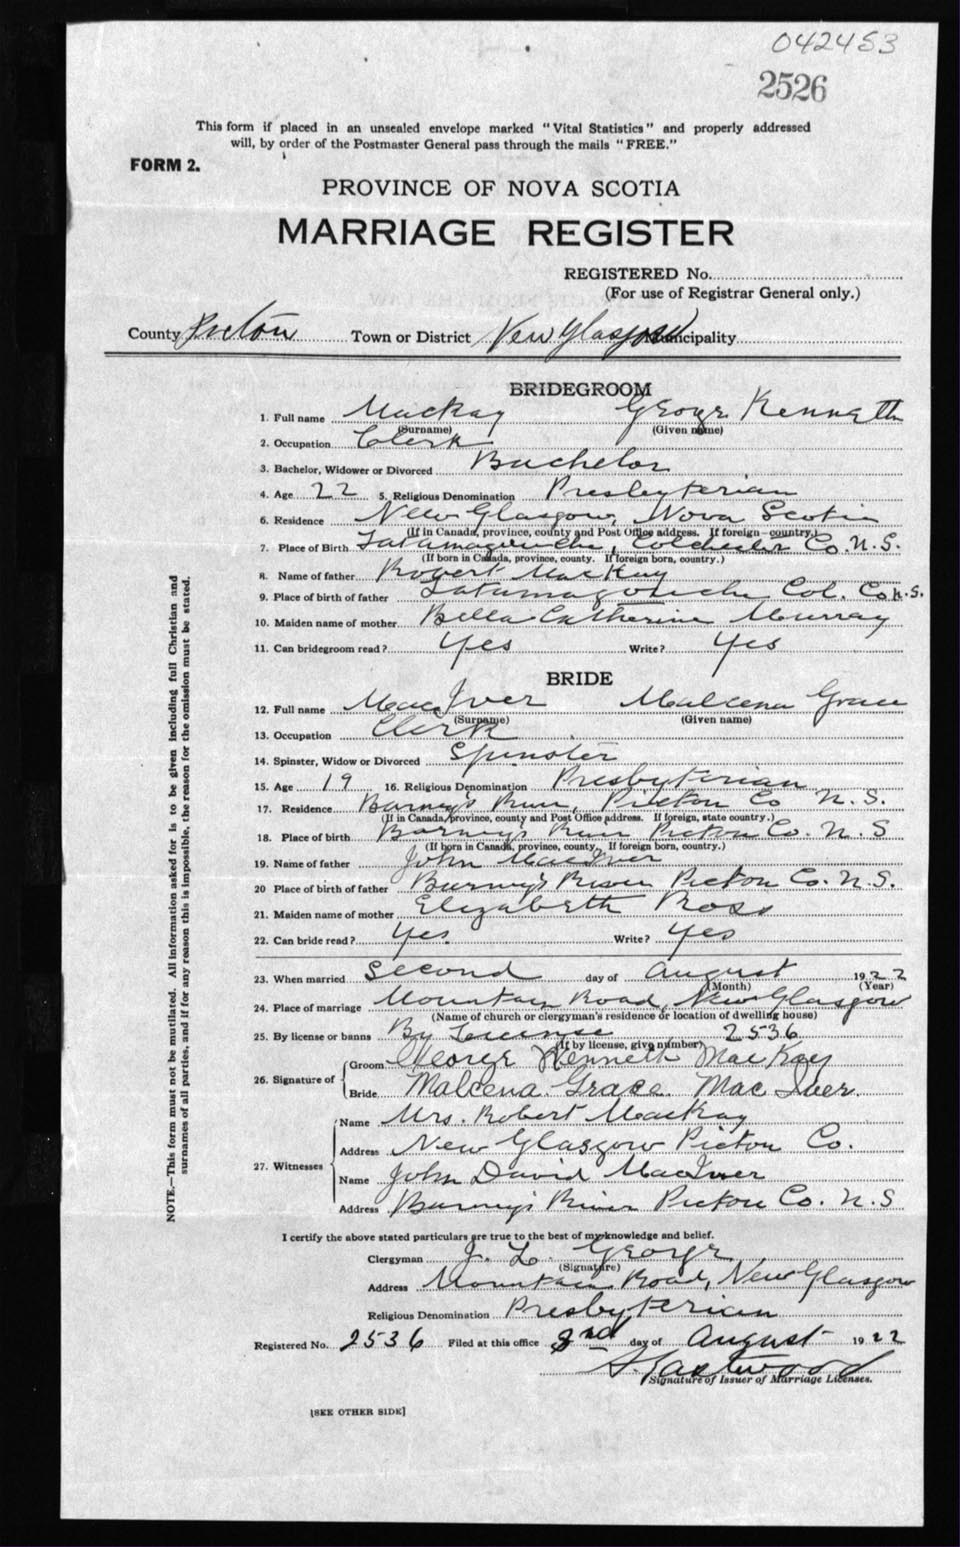 042453
2526
This form if placed in an unsealed envelope marked "Vital Statistics" and properly addressed
will, by order of the Postmaster General pass through the mails "FREE."
FORM 2.
PROVINCE OF NOVA SCOTIA
MARRIAGE REGISTER
REGISTERED No.
(For use of Registrar General only.)
County Pictou Town or District New Glasgow Municipality
BRIDEGROOM
1. Full name MacKay George Kenneth
(Surname) (Given name)
2. Occupation Clerk
3. Bachelor, Widower or Divorced Bachelor
4. Age 22 5. Religious Denomination Presbyterian
6. Residence New Glasgow, Nova Scotia
(If in Canada, province, county and Post Office address. If foreign country.)
7. Place of Birth Tatamagouche, Colchester Co. N.S.
(If born in Canada, province, county. If foreign born, country.)
8. Name of father Robert MacKay
9. Place of birth of father Tatamagouche Col. Co. N.S.
10. Maiden name of mother Bella Catherine Murray
11. Can bridegroom read? Yes Write? Yes
BRIDE
12. Full name MacIver Malcena Grace
(Surname) (Given name)
13. Occupation Clerk
14. Spinster, Widow or Divorced Spinster
15. Age 19 16. Religious Denomination Presbyterian
17. Residence Barney's River, Pictou Co N.S.
(If in Canada, province, county and Post Office address. If foreign, state country.)
18. Place of birth Barney's River Pictou Co. N.S
(If born in Canada, province, county. If foreign born, country.)
19. Name of father John MacIver
20 Place of birth of father Barney's River Pictou Co. N.S.
21. Maiden name of mother Elizabeth Ross
22. Can bride read? Yes. Write? Yes
23. When married Second day of August 1922
(Month) (Year)
24. Place of marriage Mountain Road, New Glasgow
(Name of church or clergyman's residence or location of dwelling house)
25. By license or banns By License 2536
(If by license, give number)
26. Signature of Groom George Kenneth MacKay
Bride Malcena Grace MacIver.
27. Witnesses Name Mrs. Robert MacKay
Address New Glasgow Pictou Co.
Name John David MacIver
Address Barney's River Pictou Co. N.S
I certify the above stated particulars are true to the best of my knowledge and belief.
Clergyman J. L. George
(Signature)
Address Mountain Road, New Glasgow
Religious Denomination Presbyterian
Registered No. 2536 Filed at this office 2nd day of August 1922
Eastwood
Signature of Issuer of Marriage Licenses.
[SEE OTHER SIDE]
NOTE.—This form must not be mutilated. All information asked for is to be given including full Christian and
surnames of all parties, and if for any reason this is impossible, the reason for the omission must be stated.